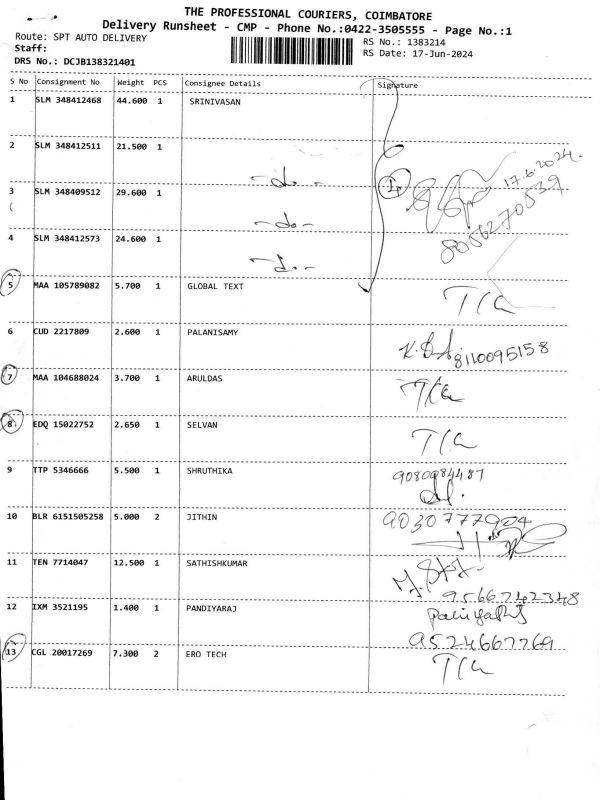 THE PROFESSIONAL COURIERS, COIMBATORE
Delivery Runsheet - CMP - Phone No.:0422-3505555 - Page No.:1
Route: SPT AUTO DELIVERY
RS No.: 1383214
Staff:
RS Date: 17-Jun-2024
DRS No.: DCJB138321401
S No Consignment No Weight PCS Consignee Details Signature
1 SLM 348412468 44.600 1 SRINIVASAN
2 SLM 348412511 21.500 1 -do-
17.6.2024
3 SLM 348409512 29.600 1 -do-
8056270539
4 SLM 348412573 24.600 1 -do-
5 MAA 105789082 5.700 1 GLOBAL TEXT
6 CUD 2217809 2.600 1 PALANISAMY 8110095158
7 MAA 104688024 3.700 1 ARULDAS
8 EDQ 15022752 2.650 1 SELVAN
9 TTP 5346666 5.500 1 SHRUTHIKA 9080984487
10 BLR 6151505258 5.000 2 JITHIN 9030777904
11 TEN 7714047 12.500 1 SATHISHKUMAR
9566742348
12 IXM 3521195 1.400 1 PANDIYARAJ
9524667769
13 CGL 20017269 7.300 2 ERO TECH